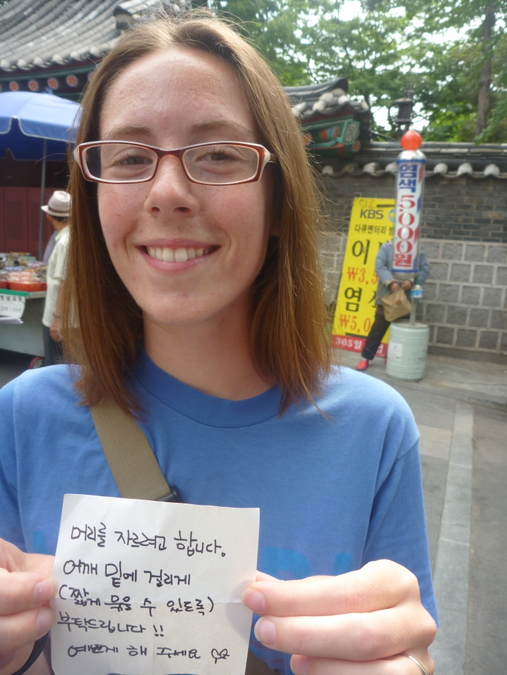 머리를 자르려고 합니다.
어깨 밑에 걸리게
(짧게 묶을 수 있도록)
부탁드립니다 !!
예쁘게 해 주세요
KBS
다큐멘터리
이
₩3,5
염
₩5,0
365일
염색 5000원